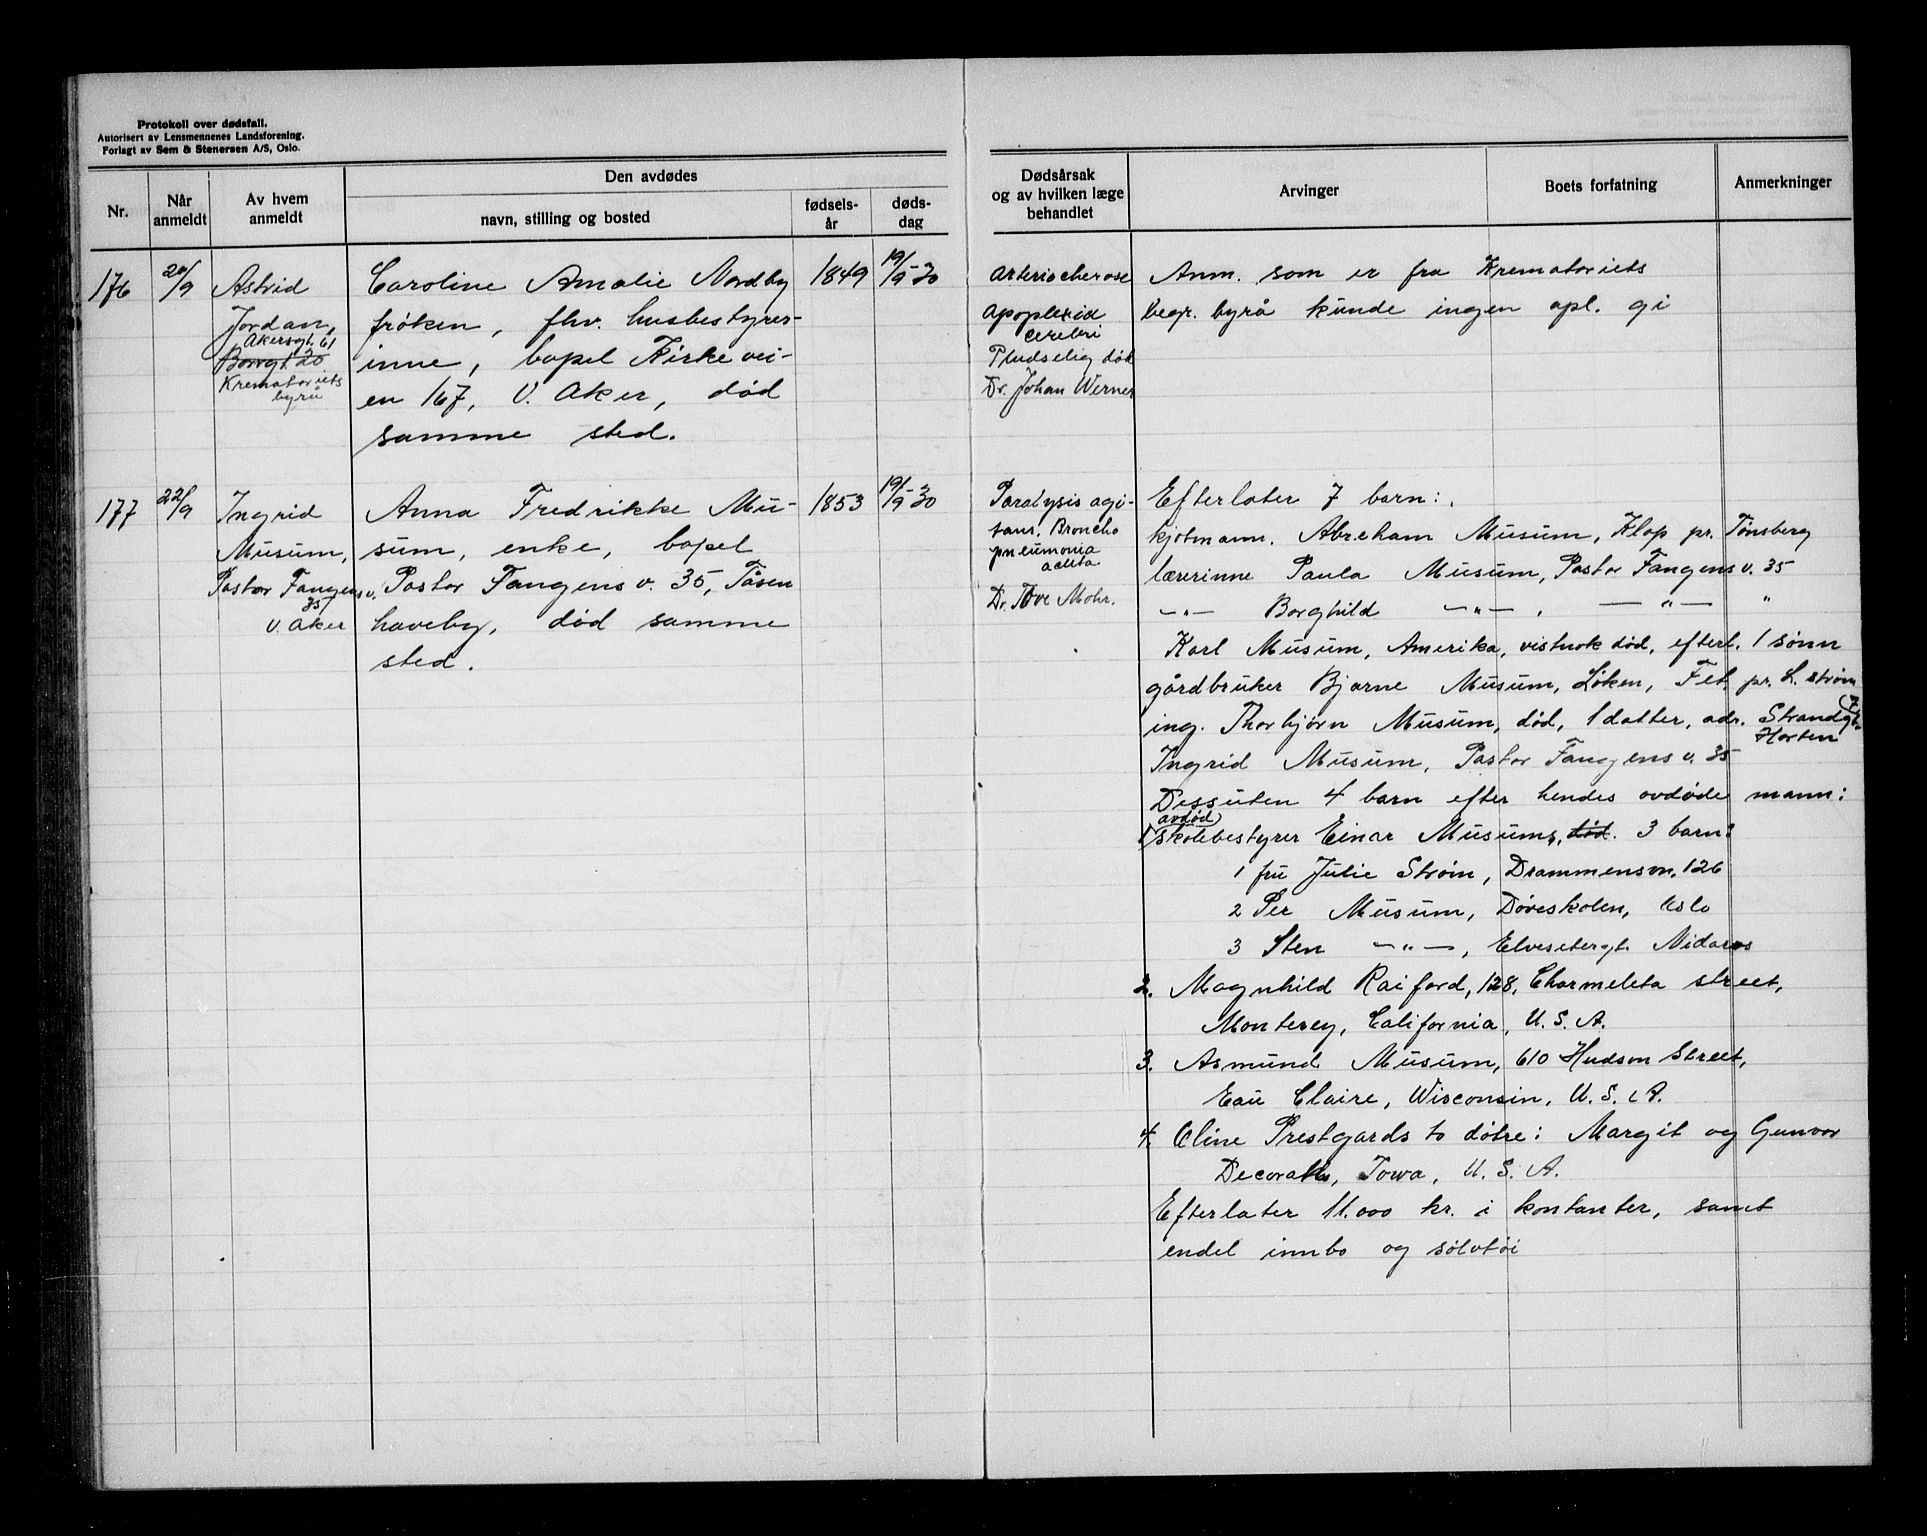 Protokoll over dødsfall.
Autorisert av Lensmennenes Landsforening.
Forlagt av Sem & Stenersen A/S, Oslo.
Nr.
Når anmeldt
Av hvem anmeldt
Den avdødes
navn, stilling og bosted
fødsels-år
døds-dag
Dødsårsak
og av hvilken læge
behandlet
Arvinger
Boets forfatning
Anmerkninger
176
20/9
Astrid
Jordan,
Akersgt. 61
Borggt. 20
Krematoriets
byrå
Caroline Amalie Nordby
frøken, fhv. husbestyrer-
inne, bopel Kirkevei-
en 167, V. Aker, død
samme sted.
1849
19/9-30
Arteriocherose
Apoplexid
cerebri
Pludselig død
Dr. Johan Werner
Anm. som er fra Krematoriets
begr. byrå kunde ingen opl. gi
177
22/9
Ingrid
Musum,
Pastor Fangens v.
35
V. Aker
Anna Fredrikke Mu-
sum, enke, bopel
Pastor Fangens v. 35, Tåsen
haveby, død samme
sted.
1853
19/9-30
Paralysis agi-
tans, Broncho
pneumonia
acuta
Dr. Tove Mohr.
Efterlater 7 barn:
kjøtmann. Abraham Musum, Klop pr. Tønsberg
lærerinne Paula Musum, Pastor Fangens v. 35
—„— Borghild —„—, —„— „
Karl Musum, Amerika, vistnok død, efterl. 1 sønn
gårdbruker Bjarne Musum, Løken, Fet pr. L. strøm
ing. Thorbjørn Musum, død, 1 datter, adr. Strandgt. 7
Horten
Ingrid Musum, Pastor Fangens v. 35
Dessuten 4 barn efter hendes avdøde mann:
avdød
1 skolebestyrer Einar Musums, død. 3 barn:
1 fru Julie Strøm, Drammensvn. 126
2 Per Musum, Døveskolen, Oslo
3 Sten —„—, Elvesetergt. Nidaros
2. Magnhild Raiford, 128, Charmeleta street,
Monterey, California, U. S. A.
3. Asmund Musum, 610 Hudson Street,
Eau Claire, Wisconsin, U. S. A.
4. Oline Prestgards to døtre: Margit og Gunvor
Decorah, Iowa, U. S. A.
Efterlater 11.000 kr. i kontanter, samt
endel innbo og sølvtøi